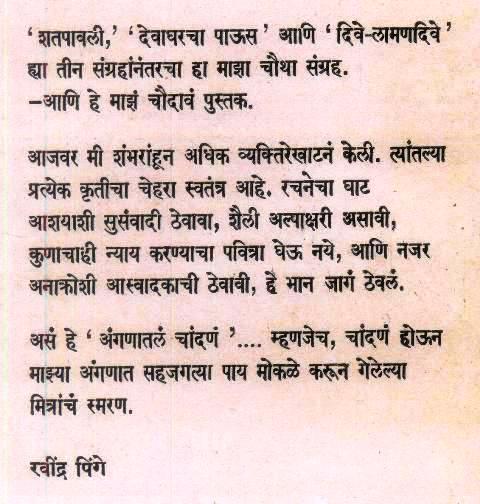 ‘शतपावली,’ ‘देवाघरचा पाऊस’ आणि ‘दिवे-लामणदिवे’
ह्या तीन संग्रहांनंतरचा हा माझा चौथा संग्रह.
—आणि हे माझं चौदावं पुस्तक.
आजवर मी शंभरांहून अधिक व्यक्तिरेखाटनं केली. त्यांतल्या
प्रत्येक कृतीचा चेहरा स्वतंत्र आहे. रचनेचा घाट
आशयाशी सुसंवादी ठेवावा, शैली अल्पाक्षरी असावी,
कुणाचाही न्याय करण्याचा पवित्रा घेऊ नये, आणि नजर
अनाक्रोशी आस्वादकाची ठेवावी, हे भान जागं ठेवलं.
असं हे ‘अंगणातलं चांदणं’.... म्हणजेच, चांदणं होऊन
माझ्या अंगणात सहजगत्या पाय मोकळे करून गेलेल्या
मित्रांचं स्मरण.
रवींद्र पिंगे